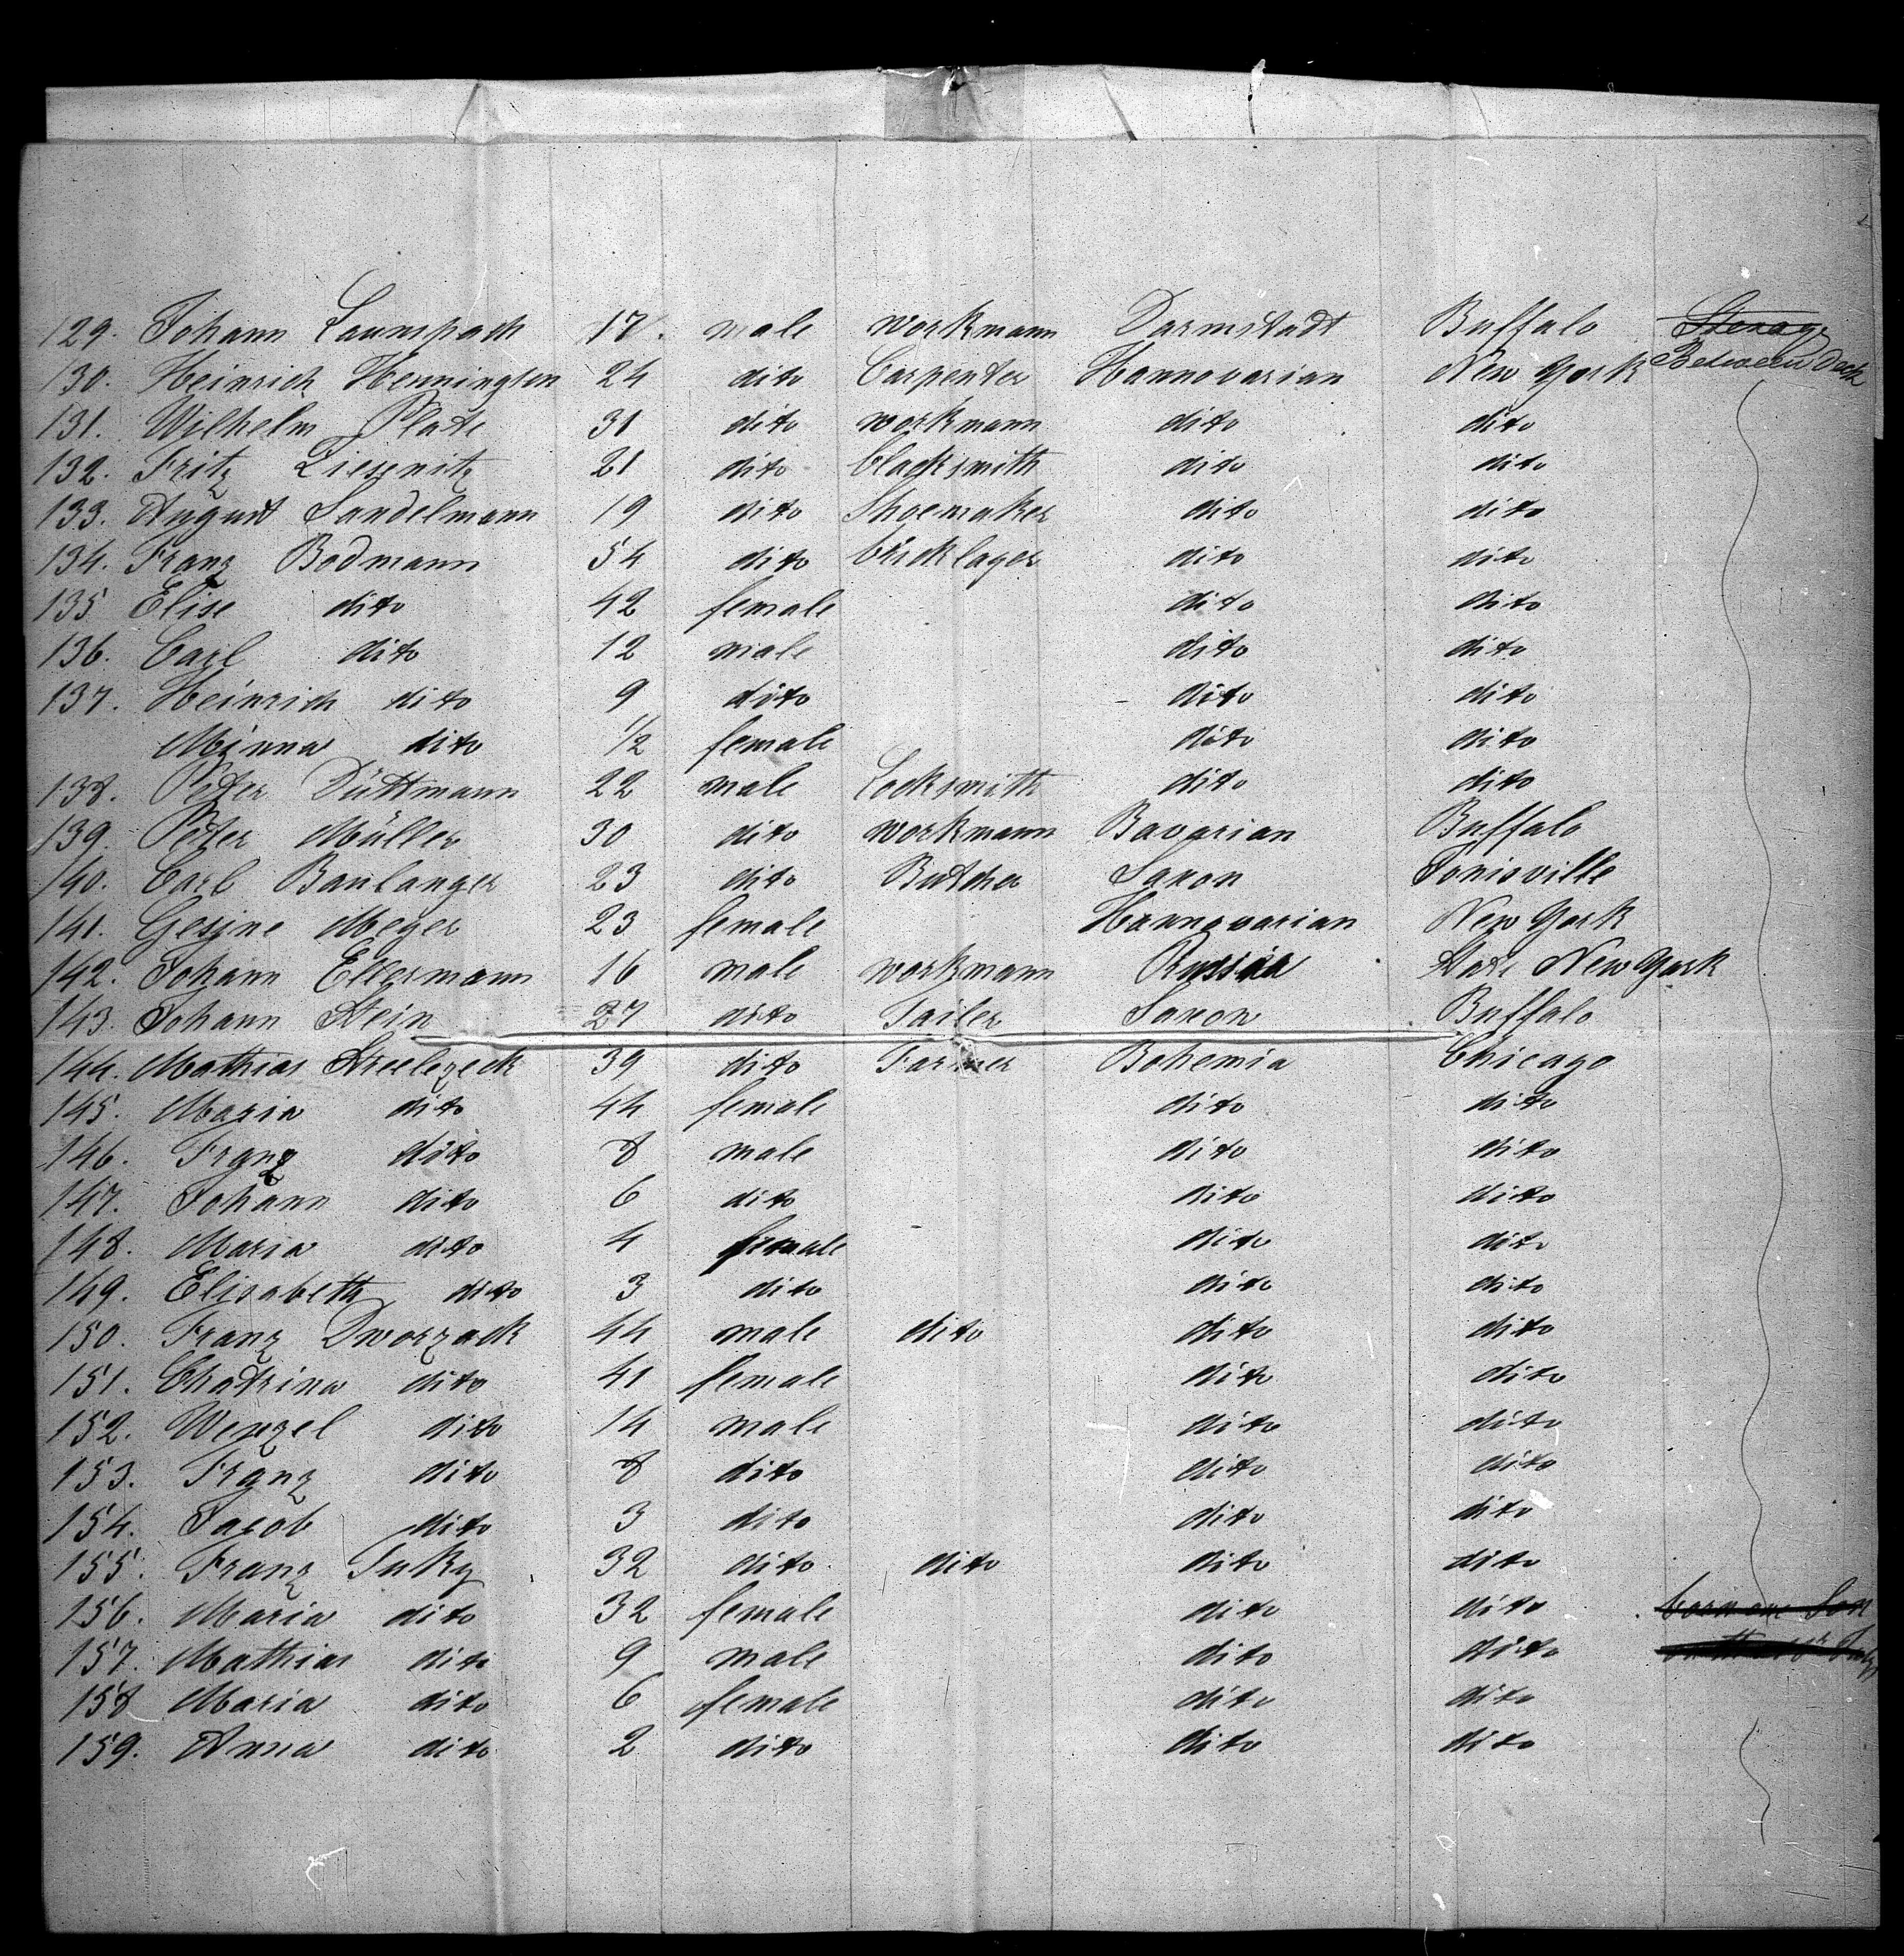 129. Johann Launspach 17. male workmann Darmstadt Buffalo Sterage
130. Heinrich Hennington 24 dito Carpenter Hannovarian New York Between Deck
131. Wilhelm Plate 31 dito workmann dito dito
132. Fritz Liesenitz 21 dito blacksmith dito dito
133. August Sandelmann 19 dito Shoemaker dito dito
134. Franz Bodmann 54 dito bricklager dito dito
135 Elise dito 42 female dito dito
136. Carl dito 12 male dito dito
137. Heinrich dito 9 dito dito dito
Minna dito 1/2 female dito dito
138. Peter Düttmann 22 male Locksmith dito dito
139. Peter Müller 30 dito workmann Bavarian Buffalo
140. Carl Baulanger 23 dito Butcher Saxon Louisville
141. Gesine Meyer 23 female Hannovarian New York
142. Johann Ellermann 16 male workmann Russia State New York
143. Johann Stein 27 dito Tailer Saxon Buffalo
144. Mathias Streelezeck 39 dito Farmer Bohemia Chicago
145. Maria dito 44 female dito dito
146. Franz dito 8 male dito dito
147. Johann dito 6 dito dito dito
148. Maria dito 4 female dito dito
149. Elisabeth dito 3 dito dito dito
150. Franz Dworzack 44 male dito dito dito
151. Chatrina dito 41 female dito dito
152. Wenzel dito 14 male dito dito
153. Franz dito 8 dito dito dito
154. Jacob dito 3 dito dito dito
155. Franz Tuky 32 dito dito dito dito
156. Maria dito 32 female dito dito born one Son
157. Mathias dito 9 male dito dito
158 Maria dito 6 female dito dito
159. Anna dito 2 dito dito dito